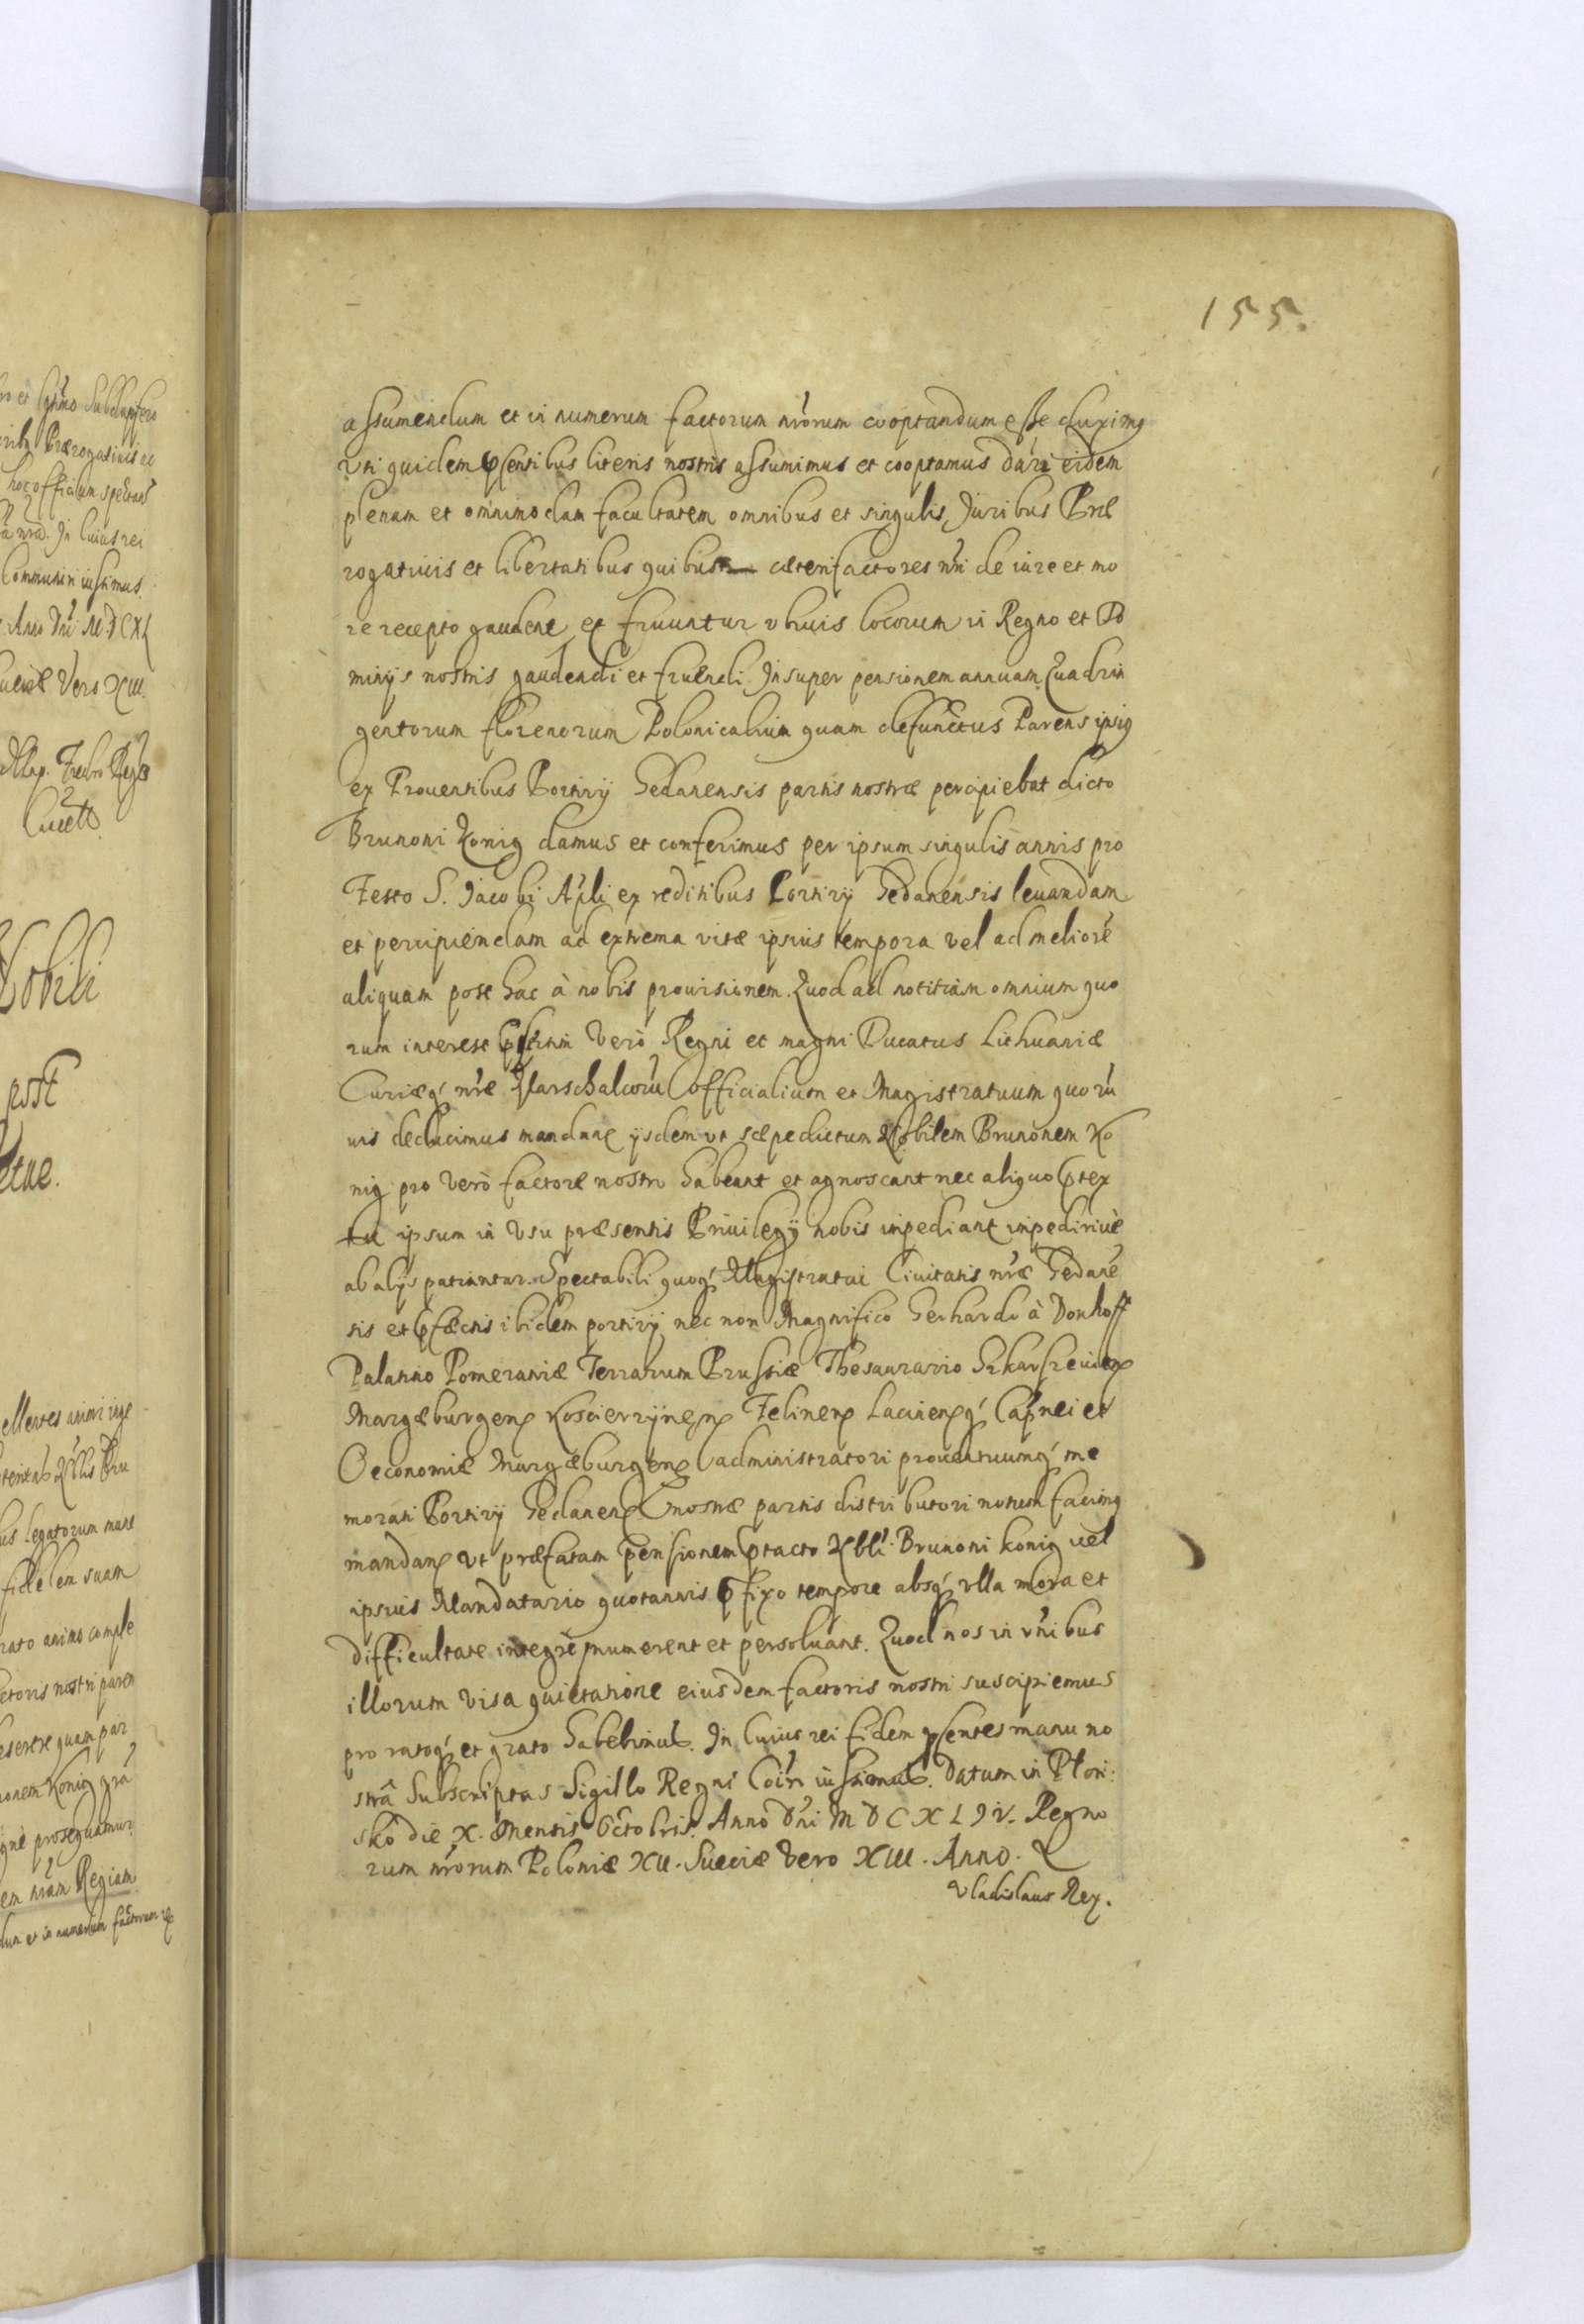 155.
assumendum et in numerum factorum nrorum cooptandum esse duximus
uti quidem psentibus literis nostris assumimus et cooptamus data eidem
plenam et omnimodam facultatem omnibus et singulis Juribus Præ
rogativis et libertatibus quibus cæteri factores nri de iure et mo
re recepto gaudent et fruuntur ubiuis locorum in Regno et Do
minijs nostris gaudendi et fruendi. Insuper pensionem annuam Quadrin
gentorum florenorum Polonicalium quam defunctus Parens ipsius
ex Prouentibus Portirij Gedanensis partis nostræ percipiebat dicto
Brunoni Konig damus et conferimus per ipsum singulis annis pro
Festo S. Jacobi Apli ex reditibus Portirij Gedanensis leuandam
et percipiendam ad extrema vitæ ipsius tempora vel ad meliore
aliquam post hac à nobis prouisionem. Quod ad notitiam omnium quo
rum interest psertim Verò Regni et magni Ducatus Lithuaniæ
Curiæq nræ Marschalcoru Officialium et Magistratuum quoru
uis deducimus mandan ijsdem ut sæpedictum Nobilem Brunonem Ko
nig pro Verò factore nostro habeant et agnoscant nec aliquo ptex
tu ipsum in Vsu præsentis Priuilegij nobis inpediant inpediriuè
ab alijs patiantur. Spectabili quoq Magistratui Ciuitatis nræ Gedane
sis et pfectis ibidem portirij nec non Magnifico Gerhardo à Donhoff
Palatino Pomeraniæ Terrarum Prussiæ Thesaurario Skarszeuien
Margæburgen Koscierzÿnen Felinen Lacinenq Capnei et
Oeconomiæ Margæburgen administratori prouentuumq me
morati Portirij Gedanen nostræ partis distributori notum facimus
mandan Vt præfatam pensionem ptacto Nbli Brunoni Konig uel
ipsius Mandatario quotannis pfixo tempore absq vlla mora et
difficultate integrè pnumerent et persoluant. Quod nos in rnibus
illorum visa quietatione eiusdem factoris nostri suscipiemus
pro ratoq et grato habebimus. In Cuius rei fidem psentes manu no
strâ Subscriptas Sigillo Regni Coiri iussimus. Datum in
sko die X. Mensis Octobris. Anno Dni MDCXLIV. Regno
rum nrorum Poloniæ XII. Sueciæ Vero XIII. Anno.
Vladislaus Rex.